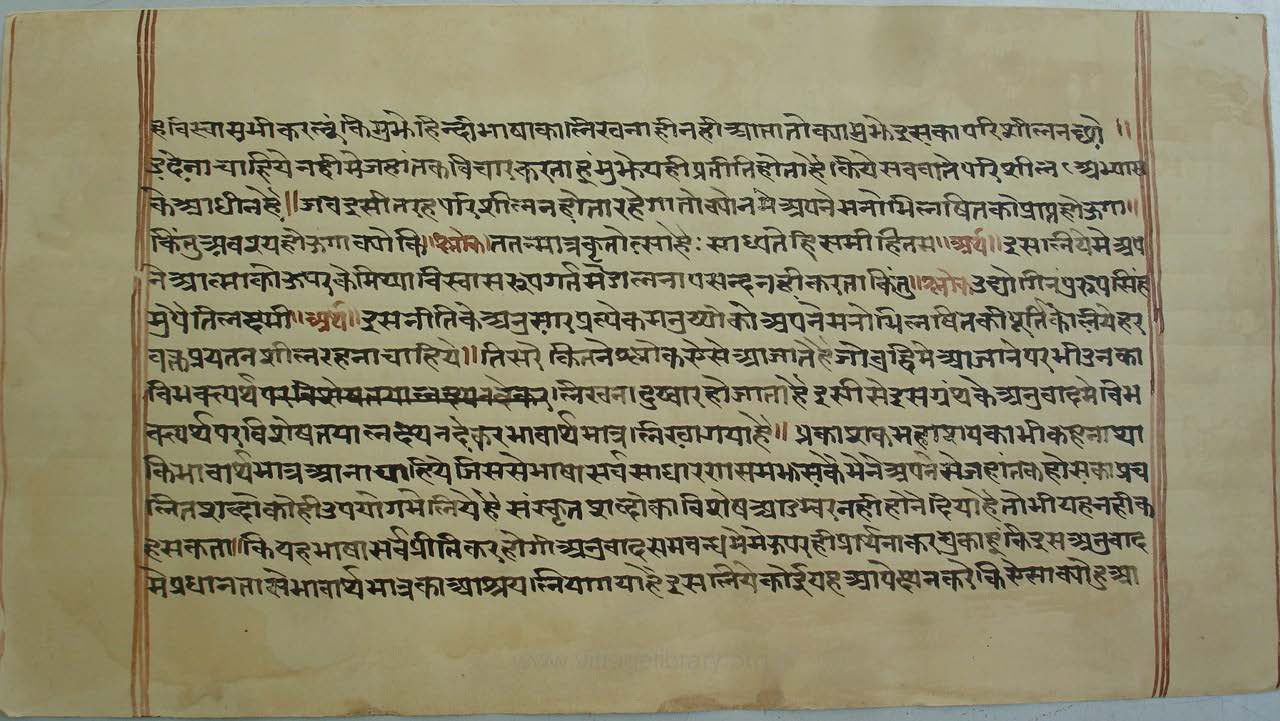 हवि स्वा समुभी करलूं कि मुझे हिन्दी भाषाका लिखना ही नही आता तो क्या मुझे इसका परिशीलन छो ॥
ड देना चाहिये नही मे जहां तक विचार करता हूं मुझे यही प्रतीति होता है कि ये सव वाते परिशीलन अभ्यास
के आधीन है॥ जव इसी तरह परिशीलन होता रहेगा तो क्यो न मे अपने मनोभिलषित को प्राप्त होऊगा॥
किंतु अवश्य होऊगा क्यो कि॥श्लोक॥ ततन्मात्र कृतोत्साहैः साध्यते हि समीहितम॥अर्थ॥ इसा लिये मे अप
ने आत्मा को ऊपर के मिथ्या विस्वास रूप गर्त मे डालना पसन्द नही करता किंतु॥श्लोक उद्योगीनं पुरुष सिंह
मुपैति लक्ष्मी॥अर्थ॥ इस नीति के अनुसार प्रत्येक मनुष्यो को अपने मनोभिलषित की पूर्ति के लिये हर
वक्त प्रयतन शील रहना चाहिये॥ तिसरे कितने श्लोक ऐसे आजाते है जो वुद्धि मे आजाने पर भी उनका
विभक्त्यर्थ पर विशेषतया लक्ष्य न देकर लिखना दुखार हो जाता है इसी से इस ग्रंथ के अनुवाद मे विभ
क्त्यर्थ पर विशेषतया लक्ष्य न देकर भावार्थ मात्र लिखा गया है॥ प्रकाशक महाशय का भी कहना था
कि भावार्थ मात्र आना चाहिये जिससे भाषा सर्व साधारण समझ सके मेने अपने से जहां तक हो सका प्रच
लित शव्दो को ही उपयोग मे लिये है संस्कृत शव्दो का विशेष आडम्वर नही होने दिया है तो भी यह नही क
ह सकता॥ कि यह भाषा सर्व प्रीति कर होगी अनुवाद समवन्ध मे मे ऊपर ही प्रार्थना कर चुका हूं कि इस अनुवाद
मे प्रधानता से भावार्थ मात्र का आश्रय लिया गया है इस लिये कोई यह आपेक्ष न करे कि ऐसा क्यो हुआ